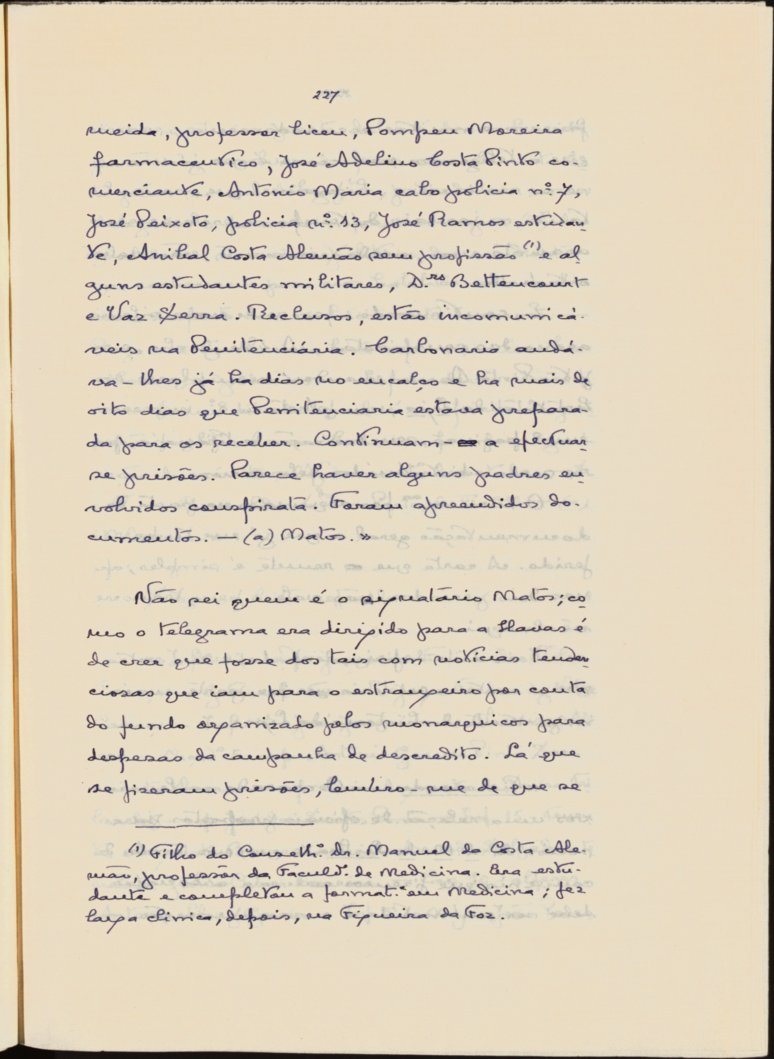 227
meida, professor liceu, Pompeu Moreira
farmaceutico, José Adelino Costa Pinto co-
merciante, Antonio Maria cabo policia nº. 7,
José Peixoto, policia nº. 13, José Ramos estudan-
te, Anibal Costa Alemão sem profissão (1) e al-
guns estudantes militares, D.rs Bettencourt
e Vaz Serra. Reclusos, estão incomunicá-
veis na Penitenciária. Carbonaria andá-
va-lhes já ha dias no encalço e ha mais de
oito dias que Penitenciaria estava prepara-
da para os receber. Continuam- a efectuar-
se prisões. Parece haver alguns padres en-
volvidos conspirata. Foram apreendidos do-
cumentos. — (a) Matos. »
Não sei quem é o signatário Matos; co-
mo o telegrama era dirigido para a Havas é
de crer que fosse dos tais com noticias tenden-
ciosas que iam para o estrangeiro por conta
do fundo organizado pelos monarquicos para
despesas da campanha de descredito. Lá que
se fizeram prisões, lembro-me de que se
(1) Filho do Conselh.º dr. Manuel da Costa Ale-
mão, professor da Faculd.e de Medicina. Era estu-
dante e completou a format.a em Medicina; fez
larga clinica, depois, na Figueira da Foz.